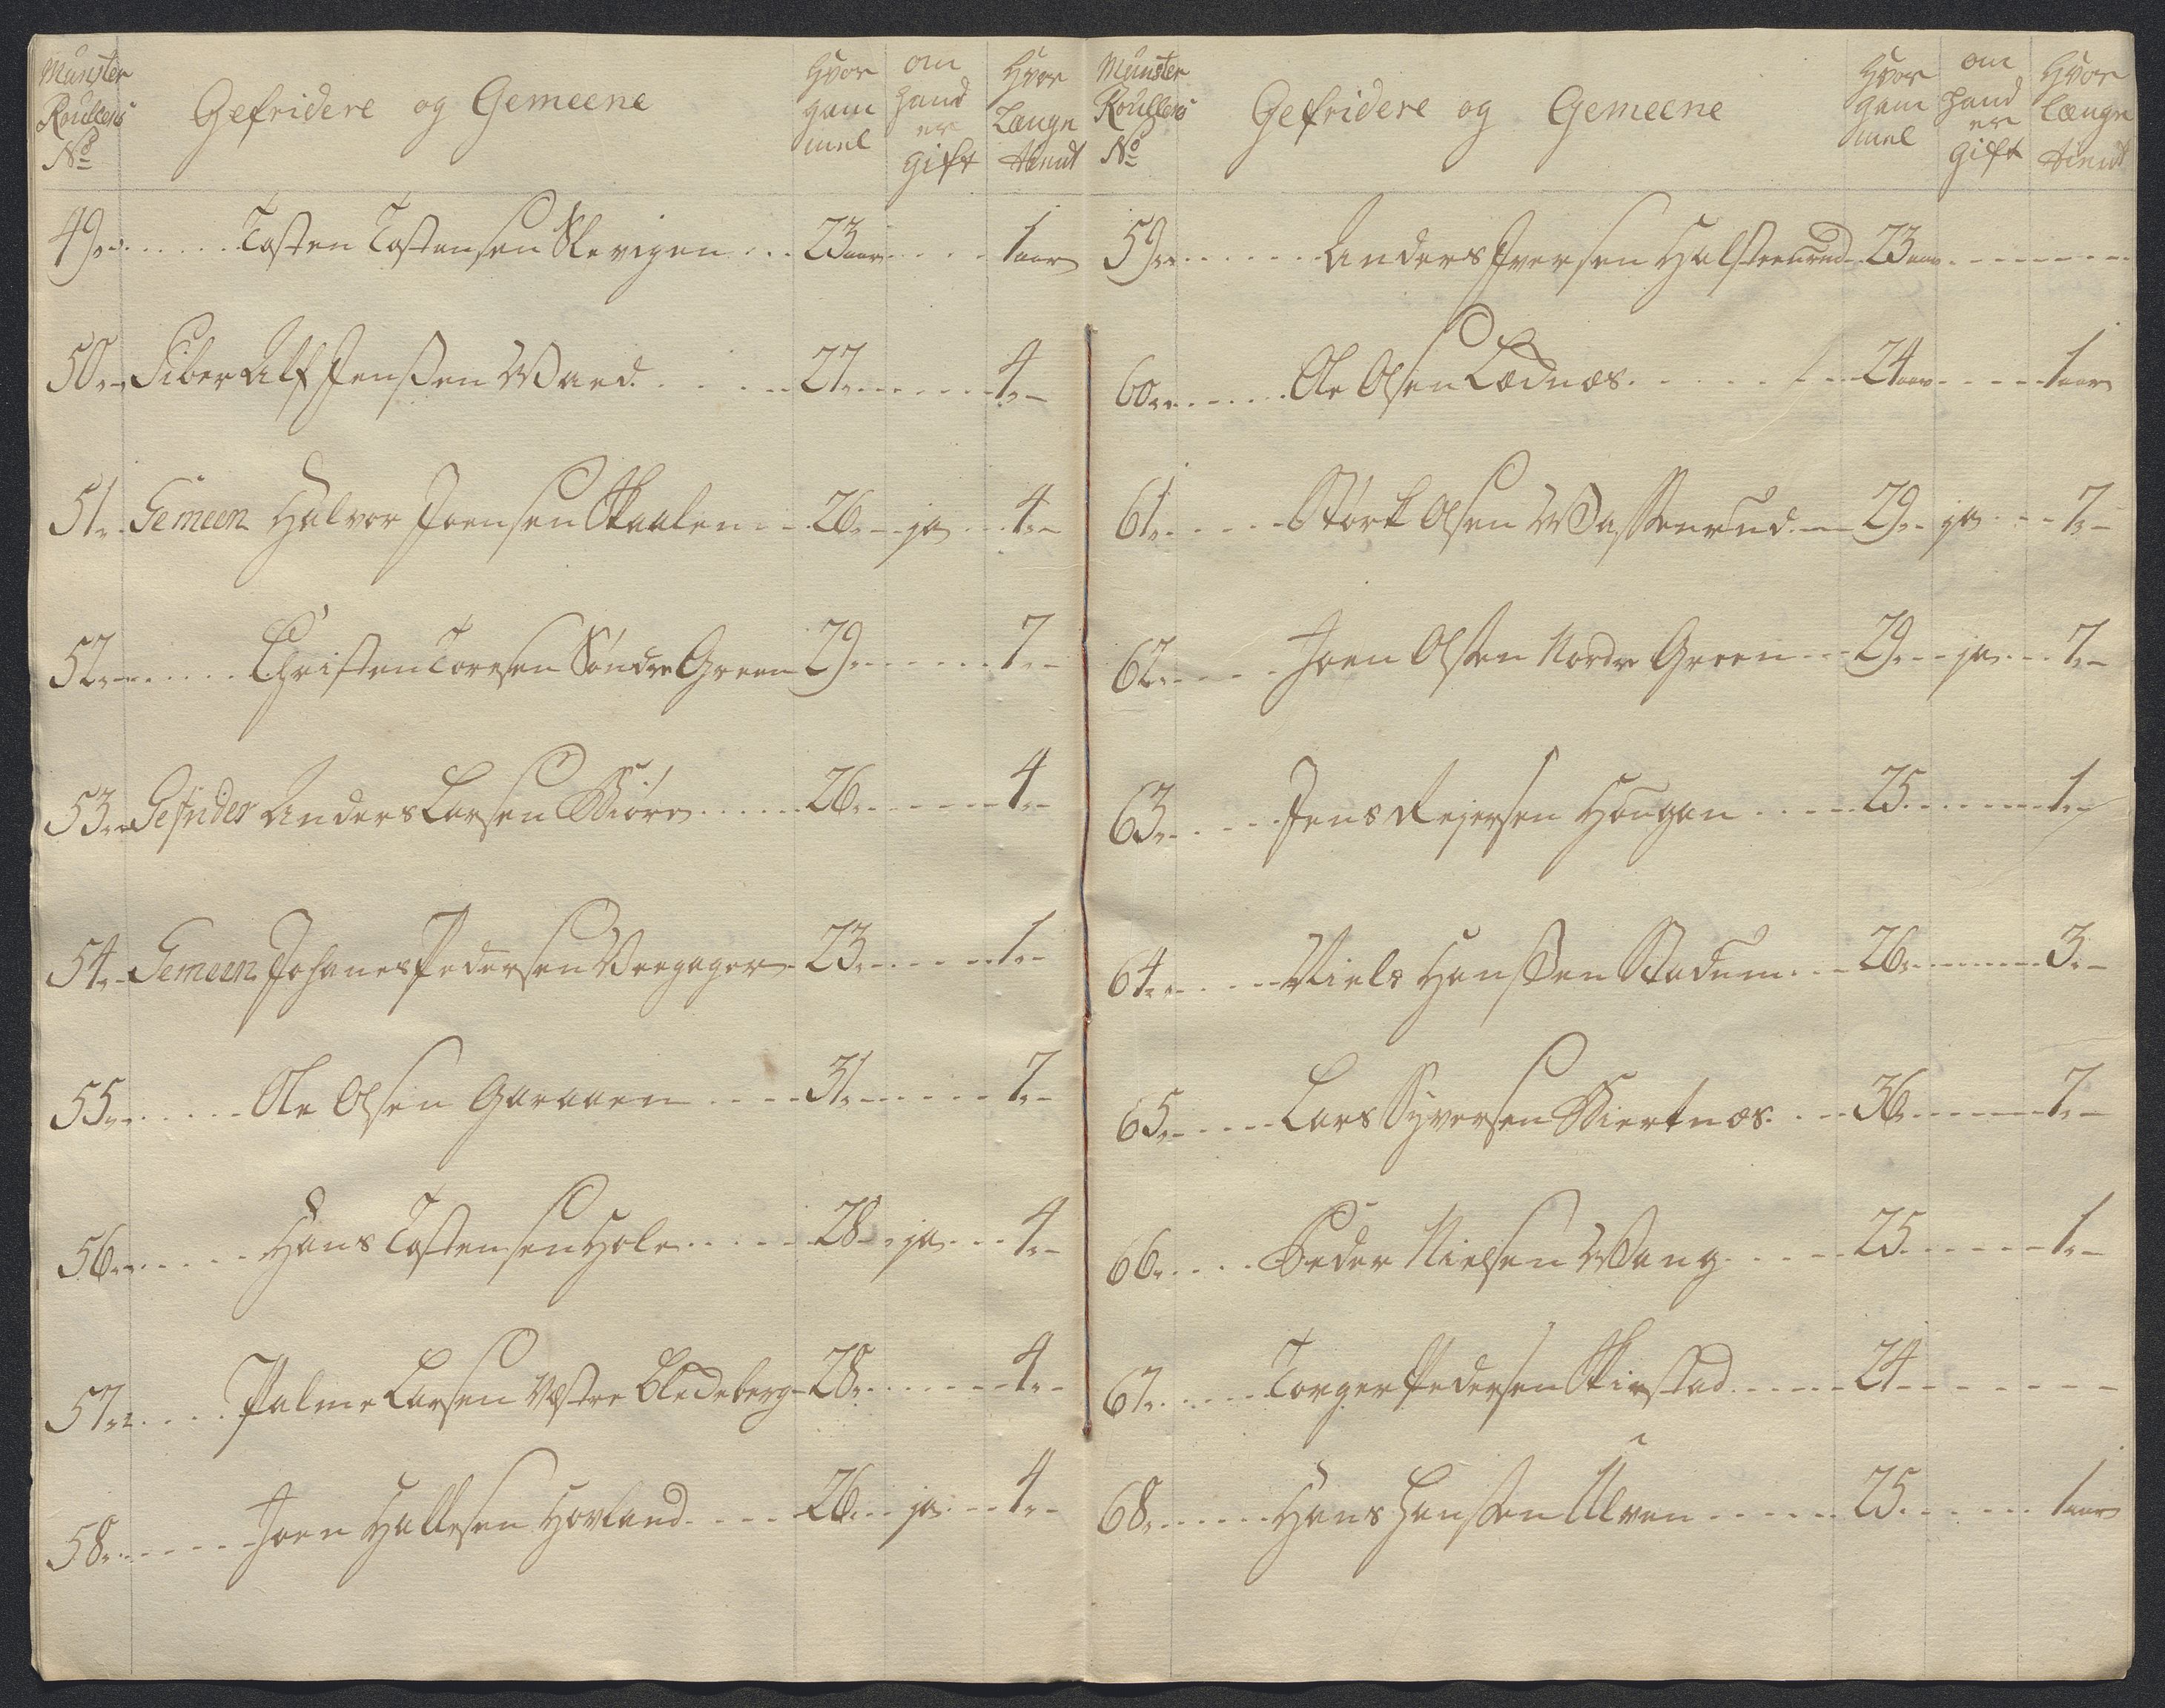 Munster Roullens No
Gefridere og Gemeene
Hvor gam mel
om hand er gift
Hvor Længe tient
49 Tosten Tostensen Klevigen 23 aar 1 aar
50 Siber Ulf Jenssen Waed 27 4
51 Gemeen Halvor Joensen Skaalen 26 ja 4
52 Christen Toresen Söndre Green 29 7
53 Gefrider Anders Larsen Kiöre 26 4
54 Gemeen Johanes Pedersen 23 1
55 Ole Olsen Garaaen 31 7
56 Hans Tostensen Hole 28 ja 4
57 Palme Larsen Vestre Bledeberg 28 4
58 Joen Hallesen Hovland 26 ja 4
Munster Roullens No
Gefridere og Gemeene
Hvor gam mel
om hand er gift
Hvor længe tient
59 Anders Iversen Halsteenrud 23 aar
60 Ole Olsen Lædnæs 24 aar 1 aar
61 Störk Olsen 29 ja 7
62 Joen Olsen Nordre Green 29 ja 7
63 Jens Rejersen Hougan 25 1
64 Niels Hanssen Stadum 26 3
65 Lars Syversen Kiertnæs 36 7
66 Peder Nielsen Wang 25 1
67 Torger Pedersen Skiestad 24
68 Hans Hansen Ulven 25 1 aar